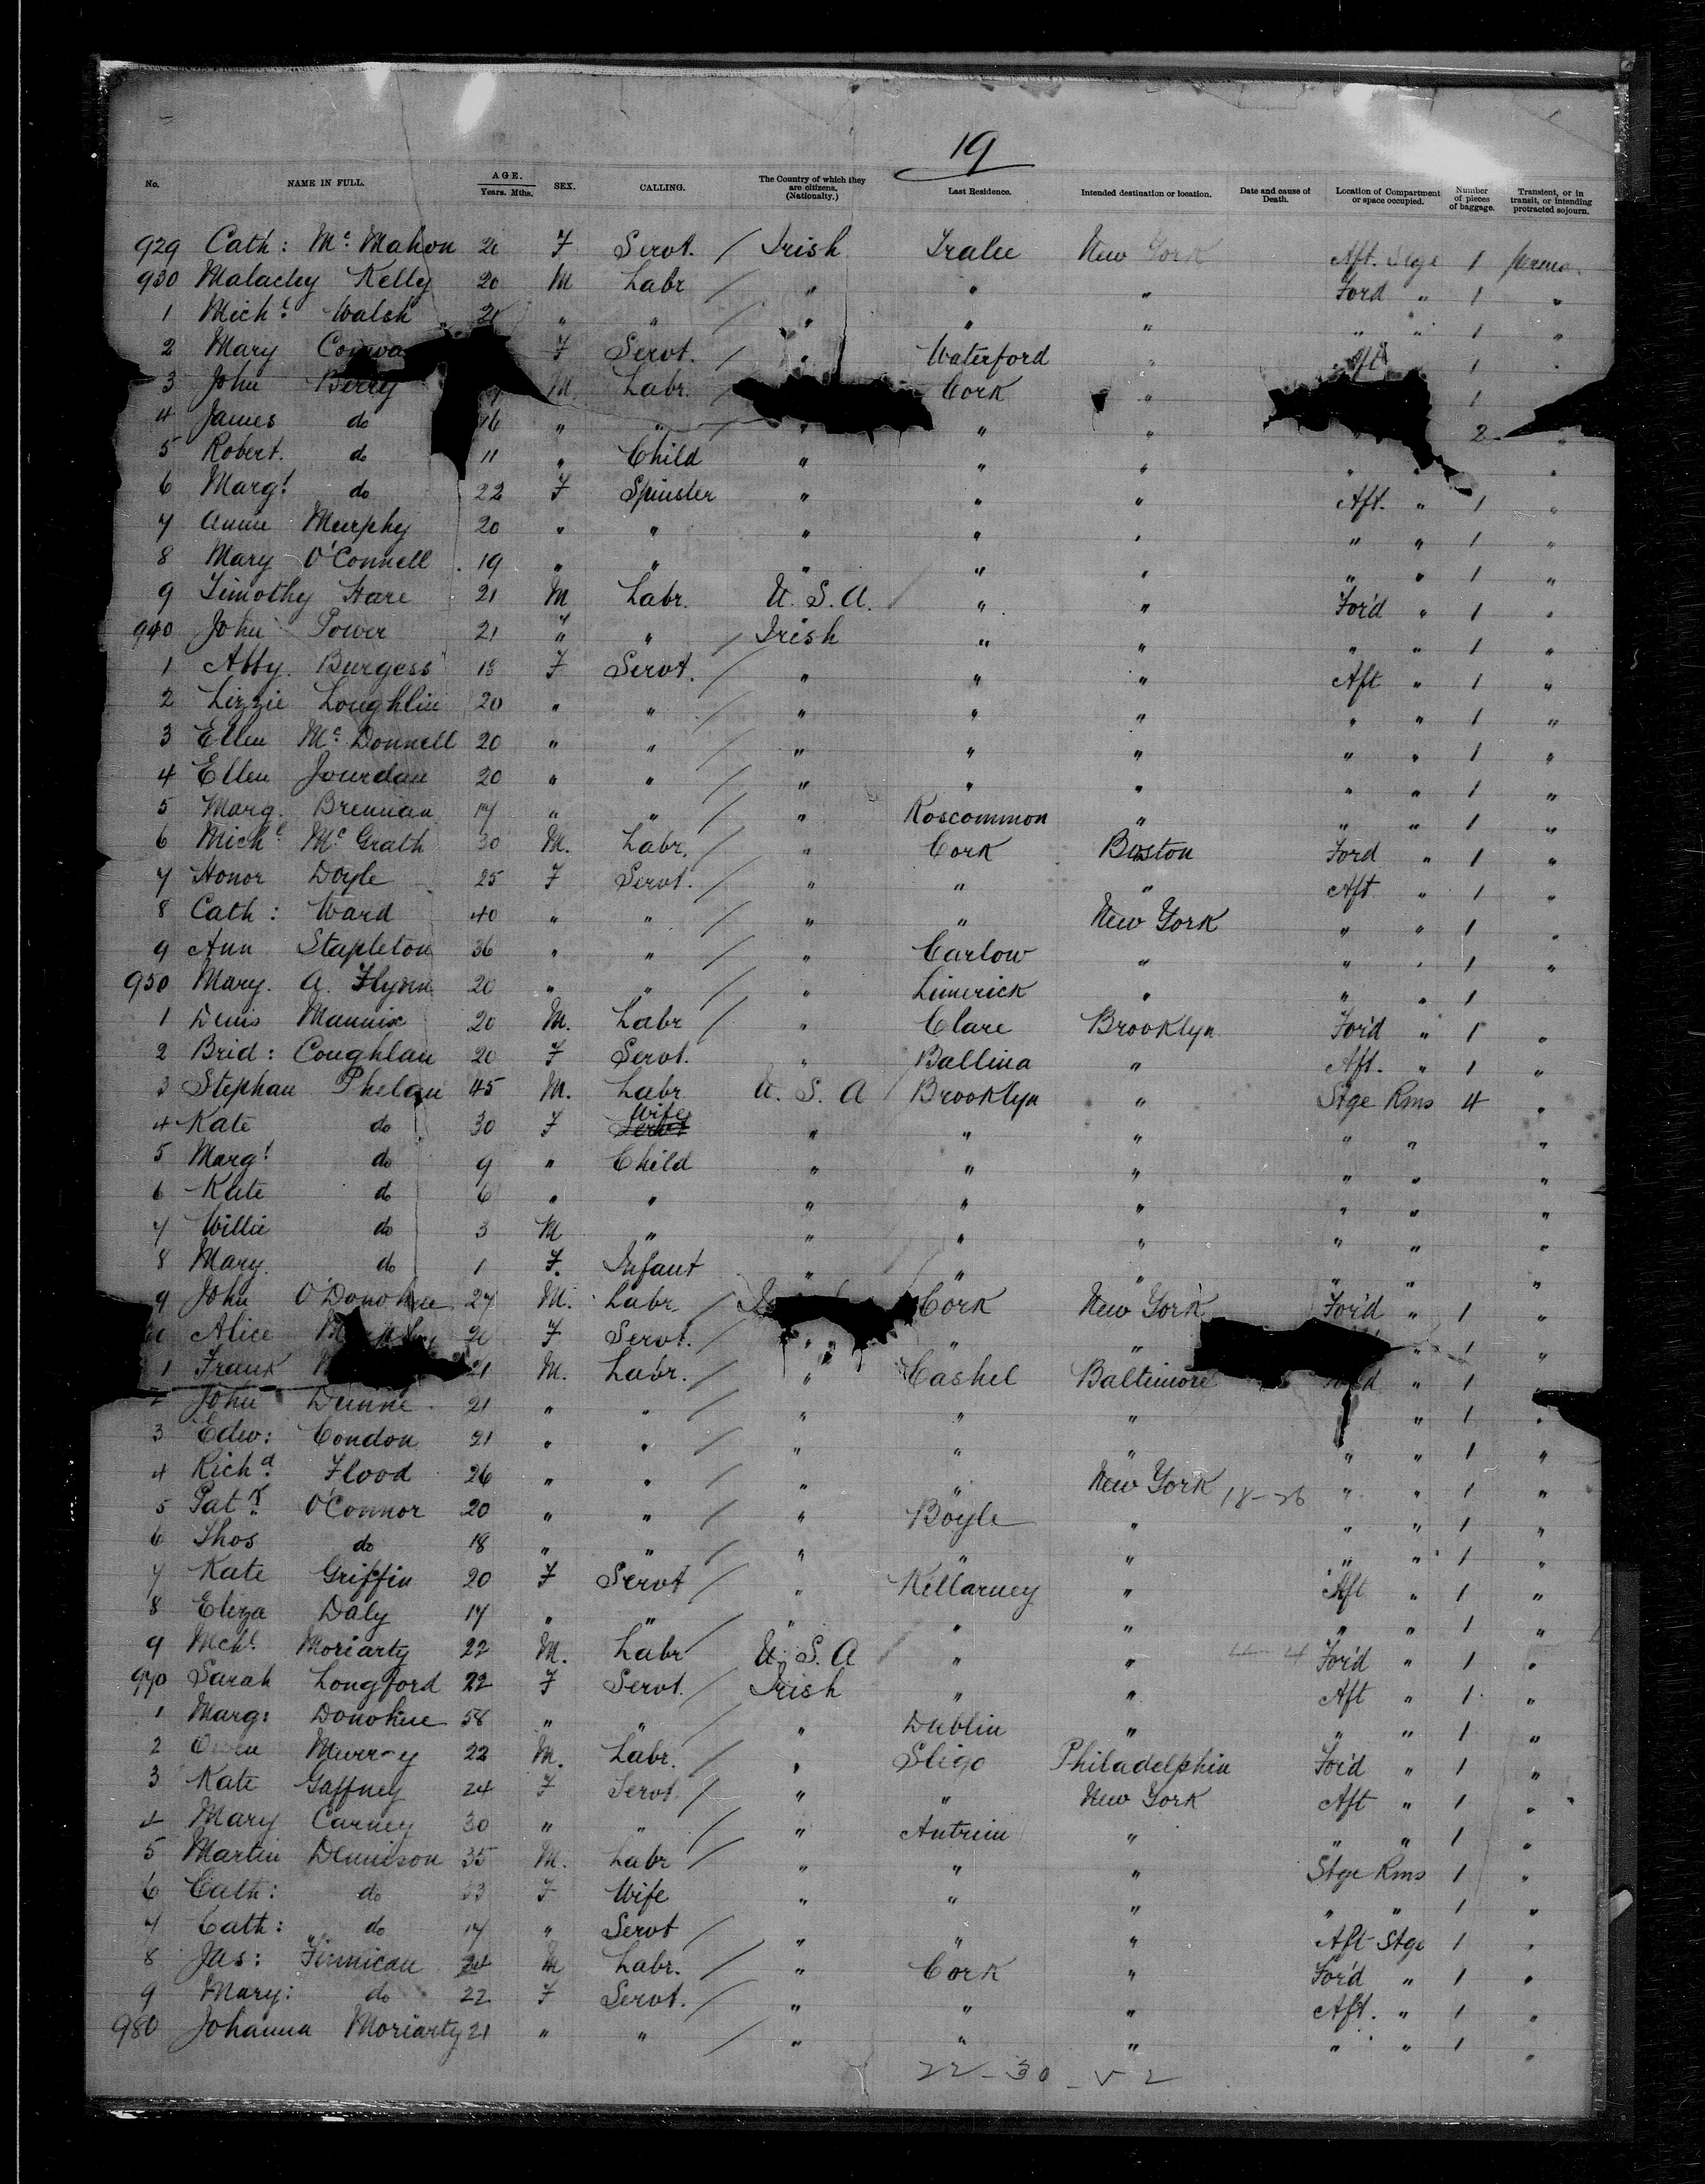 19
No. NAME IN FULL. AGE. Years. Mths. SEX. CALLING. The Country of which they are citizens. (Nationality.) Last Residence. Intended destination or location. Date and cause of Death. Location of Compartment or space occupied. Number of pieces of baggage. Transient, or in transit, or intending protracted sojourn.
929 Cath: Mc Mahon F Servt. / Irish Tralee New York Aft. Stge 1
930 Malachy Kelly 20 M Labr / " " " For'd " 1 "
1 Michl. Walsh " " / " " " " " 1 "
2 Mary F Servt. / " Waterford " Aft 1 "
3 John Berry M. Labr. / Cork " 1
4 James do 16 " " / " " " 2 "
5 Robert. do 11 " Child " " " " " "
6 Margt. do 22 F Spinster " " " Aft. " 1 "
7 Annie Murphy 20 " " " " " " " 1 "
8 Mary O'Connell 19 " " " " " " " 1 "
9 Timothy Hare 21 M Labr. U. S. A. / " " For'd " 1 "
940 John Power 21 " " / Irish " " " " 1 "
1 Abby Burgess 18 F Servt. / " " " Aft " 1 "
2 Lizzie Loughlin 20 " " / " " " " " 1 "
3 Ellen Mc Donnell 20 " " / " " " " " 1 "
4 Ellen Jourdan 20 " " / " " " " " 1 "
5 Marg. Brennan 17 " " / " Roscommon " " " 1 "
6 Michl Mc Grath 30 M. Labr. / " Cork Boston For'd " 1 "
7 Honor Doyle 25 F Servt. / " " " Aft " 1 "
8 Cath: Ward 40 " " / " " New York " " 1 "
9 Ann Stapleton 36 " " / " Carlow " " " 1 "
950 Mary. A. Flynn 20 " " / " Limerick " " " 1
1 Denis Mannix 20 M. Labr / " Clare Brooklyn For'd " 1 "
2 Brid: Coughlan 20 F Servt. " Ballina " Aft. " 1 "
3 Stephan Phelan 45 M. Labr U. S. A / Brooklyn " Stge Rms 4 "
4 Kate do 30 F Wife Servt " " " " " "
5 Margt. do 9 " Child " " " " " "
6 Kate do 6 " " " " " " " "
7 Willie do 3 M " " " " " " "
8 Mary. do 1 F. Infant " " " " " "
9 John O'Donohue 27 M. Labr / Cork New York For'd " 1 "
Alice F Servt. / " " " " 1 "
1 Frank 21 M. Labr. / " Cashel Baltimore For'd " 1 "
2 John Dunne 21 " " / " " " " 1 "
3 Edw: Condon 21 " " / " " " " " 1 "
4 Richd. Flood 26 " " / " " New York 18-26 " " 1 "
5 Patk. O'Connor 20 " " / " Boyle " " " 1 "
6 Thos do 18 " " / " " " " " 1 "
7 Kate Griffin 20 F Servt / " Killarney " Aft " 1 "
8 Eliza Daly 17 " " / " " " " " 1 "
9 Mchl. Moriarty 22 M. Labr / U. S. A / " " For'd " 1 "
970 Sarah Longford 22 F Servt. / Irish " " Aft " 1 "
1 Marg: Donohue 58 " " / " Dublin " " " 1 "
2 Owen Murray 22 M. Labr. / " Sligo Philadelphia For'd " 1 "
3 Kate Gaffney 24 F Servt. / " " New York Aft " 1 "
4 Mary Carney 30 " " / " Antrim " " " 1 "
5 Martin Dennison 35 M. Labr / " " " Stge Rms 1 "
6 Cath: do 33 F Wife " " " " " 1 "
7 Cath: do 17 " Servt / " " " Aft Stge 1 "
8 Jas: Finnican 24 M Labr. / " Cork " For'd " 1 "
9 Mary: do 22 F Servt. / " " " Aft. " 1 "
980 Johanna Moriarty 21 " " / " " " " " 1 "
22-30